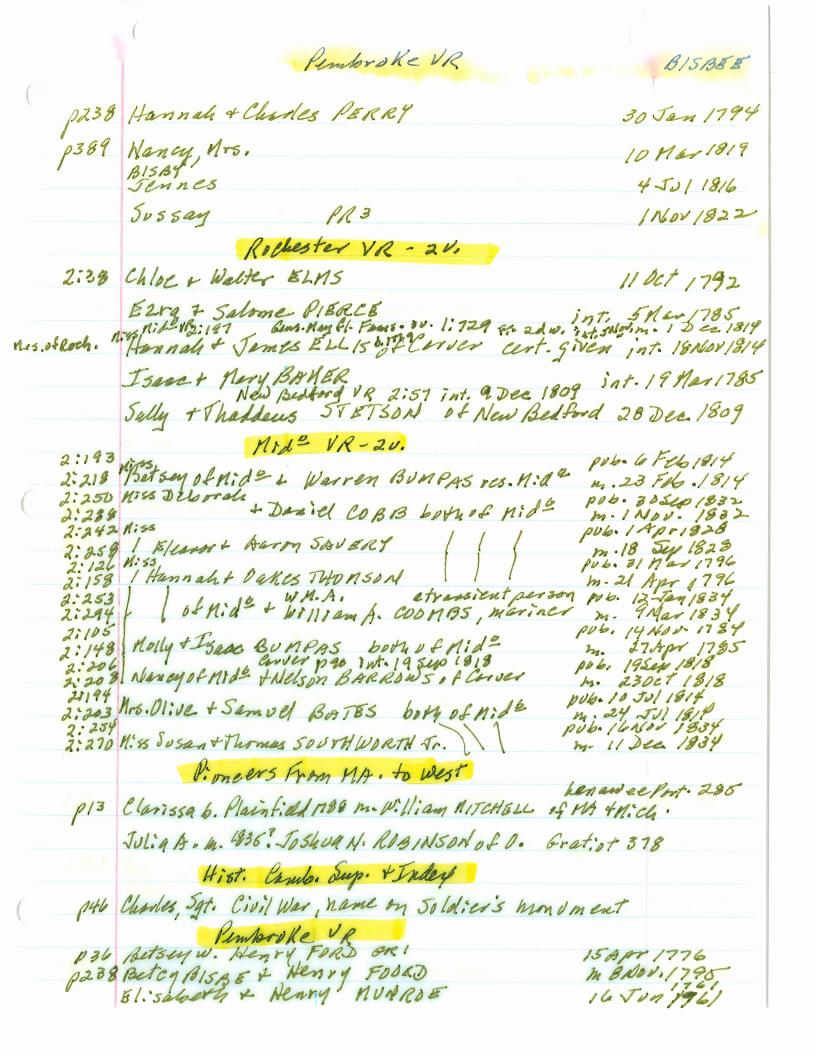 Pembroke VR BISBEE
p238 Hannah + Charles PERRY 30 Jan 1794
p389 Nancy, Mrs. 10 Mar 1819
BISBY
Jennes 4 Jul 1816
Sussay PR3 1 Nov 1822
Rochester VR - 2v.
2:38 Chloe + Walter ELMS 11 Oct 1792
Ezra + Salome PIERCE int. 5 Mar 1785
Miss Mid° VR 2:187 Gens. May Fl. Fams. 3v. 1:729 m. 1 Dec 1814
Res. of Roch. Hannah + James ELLIS of Carver cert. given int. 18 Nov 1814
Isaac + Mary BAKER int. 19 Mar 1785
New Bedford VR 2:57 int. 9 Dec 1809
Sally + Thaddeus STETSON of New Bedford 28 Dec 1809
Mid° VR - 2v.
2:193 Miss pub. 6 Feb 1814
2:218 Betsey of Mid° + Warren BUMPAS res. Mid° m. 23 Feb. 1814
2:250 Miss Deborah pub. 30 Sep 1832
+ Daniel COBB both of Mid° m. 1 Nov. 1832
2:242 Miss pub. 1 Apr 1828
2:259 Eleanor + Aaron SAVERY m. 18 Sep 1828
2:126 Miss pub. 31 Mar 1796
2:158 Hannah + Oakes THOMSON m. 21 Apr 1796
2:253 W.M.A. a transient person pub. 12 Jan 1834
2:294 of Mid° + William A. COOMBS, mariner m. 9 Mar 1834
2:105 pub. 14 Nov. 1784
2:148 Molly + Isaac BUMPAS both of Mid° m. 27 Apr 1785
2:206 Carver p90 int. 19 Sep 1818 pub. 19 Sep 1818
2:208 Nancy of Mid° + Nelson BARROWS of Carver m. 23 Oct 1818
2:194 pub. 10 Jul 1814
2:203 Mrs. Olive + Samuel BATES both of Mid° m. 24 Jul 1814
2:254 pub. 16 Nov 1834
2:270 Miss Susan + Thomas SOUTHWORTH Jr. m. 11 Dec 1834
Pioneers From MA. to West
Lenawee Port. 285
p13 Clarissa b. Plainfield 1788 m. William MITCHELL of MA + Mich.
Julia A. m. 1836? Joshua N. ROBINSON of O. Gratiot 378
Hist. Camb. Sup. + Index
p46 Charles, Sgt. Civil War, name on Soldier's monument
Pembroke VR
p36 Betsey w. Henry FORD GR1 15 Apr 1776
p238 Betcy BISBE + Henry FOORD m 8 Nov. 1795
1761
Elisabeth + Henry MUNROE 16 Jun 1961